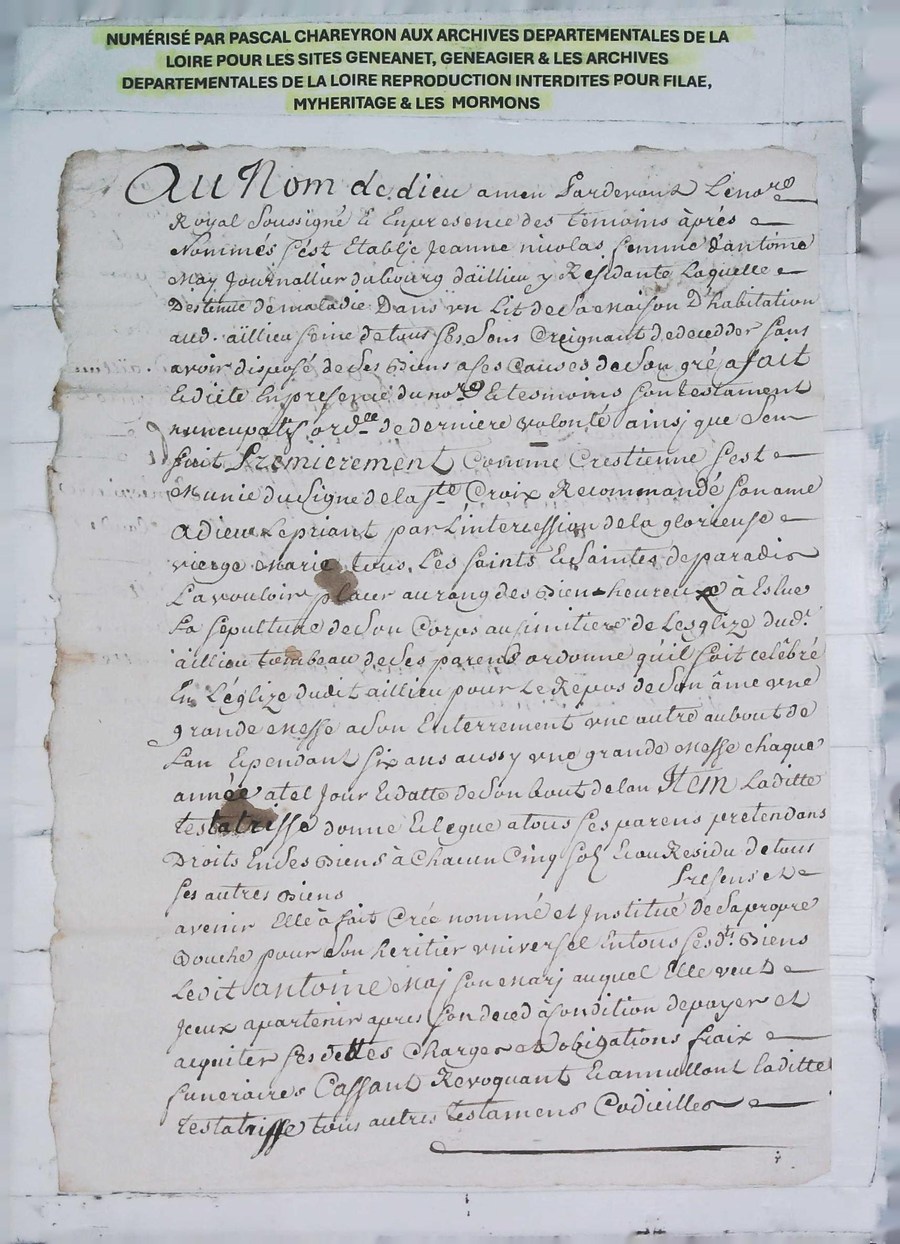 NUMÉRISÉ PAR PASCAL CHAREYRON AUX ARCHIVES DEPARTEMENTALES DE LA
LOIRE POUR LES SITES GENEANET, GENEAGIER & LES ARCHIVES
DEPARTEMENTALES DE LA LOIRE REPRODUCTION INTERDITES POUR FILAE,
MYHERITAGE & LES MORMONS
Au Nom de dieu amen Pardevant Le nore
Royal Soussigné & En presence des temoins àprés
Nommés s'est Etablie Jeanne nicolas femme d'antoine
May Journallier du bourg d'äillieu y Residante Laquelle
Destenue de maladie Dans un Lit de Sa maison D'habitation
aud. äillieu seine de tous ses Sens Creignant de decedder sans
avoir disposé de Ses Biens a Ses Causes de Son gré a fait
& dicté En presence du nore & tesmoins son testament
nuncupatif ordlle de derniere volonté ainsj que Sen
suit Premierement Comme Crestienne s'est
Munie du Signe de la ste Croix Recommandé son ame
A dieu Le priant par L'intercession de la glorieuse
vierge Marie tous Les saints & Saintes de paradis
La vouloir placer au rang des Bien heureux à Eslue
La sepulture de Son Corps au simitiere de Lesglize dud.
äillieu tombeau de Ses parens ordonne qu'il soit celebré
En L'églize dudit aillieu pour Le Repos de Son âme une
grande Messe a Son Enterrement une autre au bout de
L'an & pendant six ans aussy une grande Messe chaque
année a tel Jour & datte de Son bout de lan Item Laditte
testatrisse donne & legue a tous ses parens pretendans
Droits En Ses Biens à Chacun Cinq sols & au Residu de tous
ses autres Biens Presens et
avenir Elle à fait Créé nommé et Institué de Sa propre
Bouche pour Son heritier universel En tous ses dts Biens
Ledit antoine Maj son Marj auquel Elle veut
Jceux apartenir apres son deced à Condition de payer et
acquiter ses dettes Charges et obigations fraix
funeraires Cassant Revoquant & annullant laditte
testatrisse tous autres testamens Codicilles